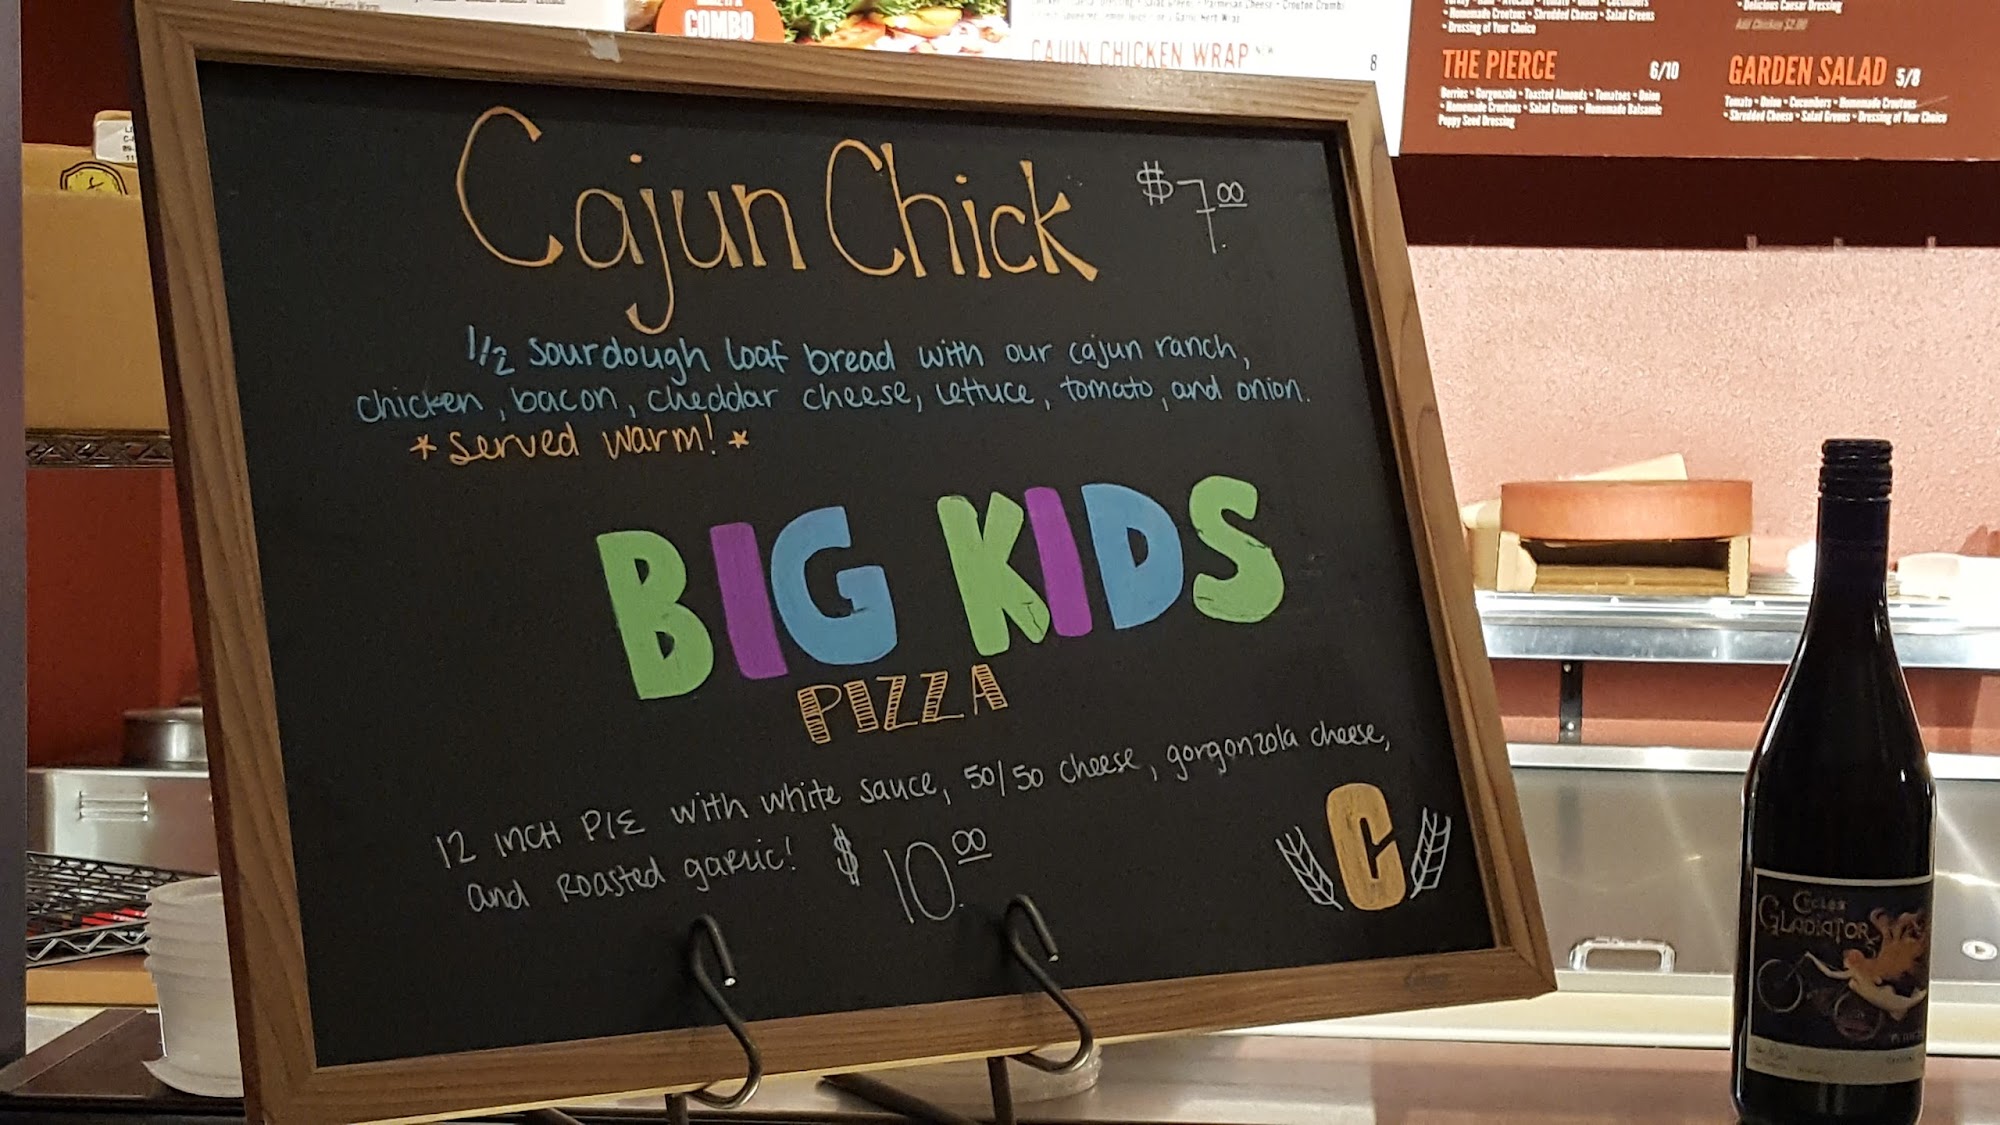 COMBO
CAJUN CHICKEN WRAP
8
• Homemade Croutons • Shredded Cheese • Salad Greens
• Dressing of Your Choice
• Delicious Caesar Dressing
Add Chicken $2.00
THE PIERCE 6/10
Berries • Gorgonzola • Toasted Almonds • Tomatoes • Onion
• Homemade Croutons • Salad Greens • Homemade Balsamic
Poppy Seed Dressing
GARDEN SALAD 5/8
Tomato • Onion • Cucumbers • Homemade Croutons
• Shredded Cheese • Salad Greens • Dressing of Your Choice
Cajun Chick $7.00
1/2 sourdough loaf bread with our cajun ranch,
chicken, bacon, cheddar cheese, lettuce, tomato, and onion.
* Served warm! *
BIG KIDS
PIZZA
12 INCH PIE with white sauce, 50/50 cheese, gorgonzola cheese,
and roasted garlic! $10.00
C
Cycles
GLADIATOR